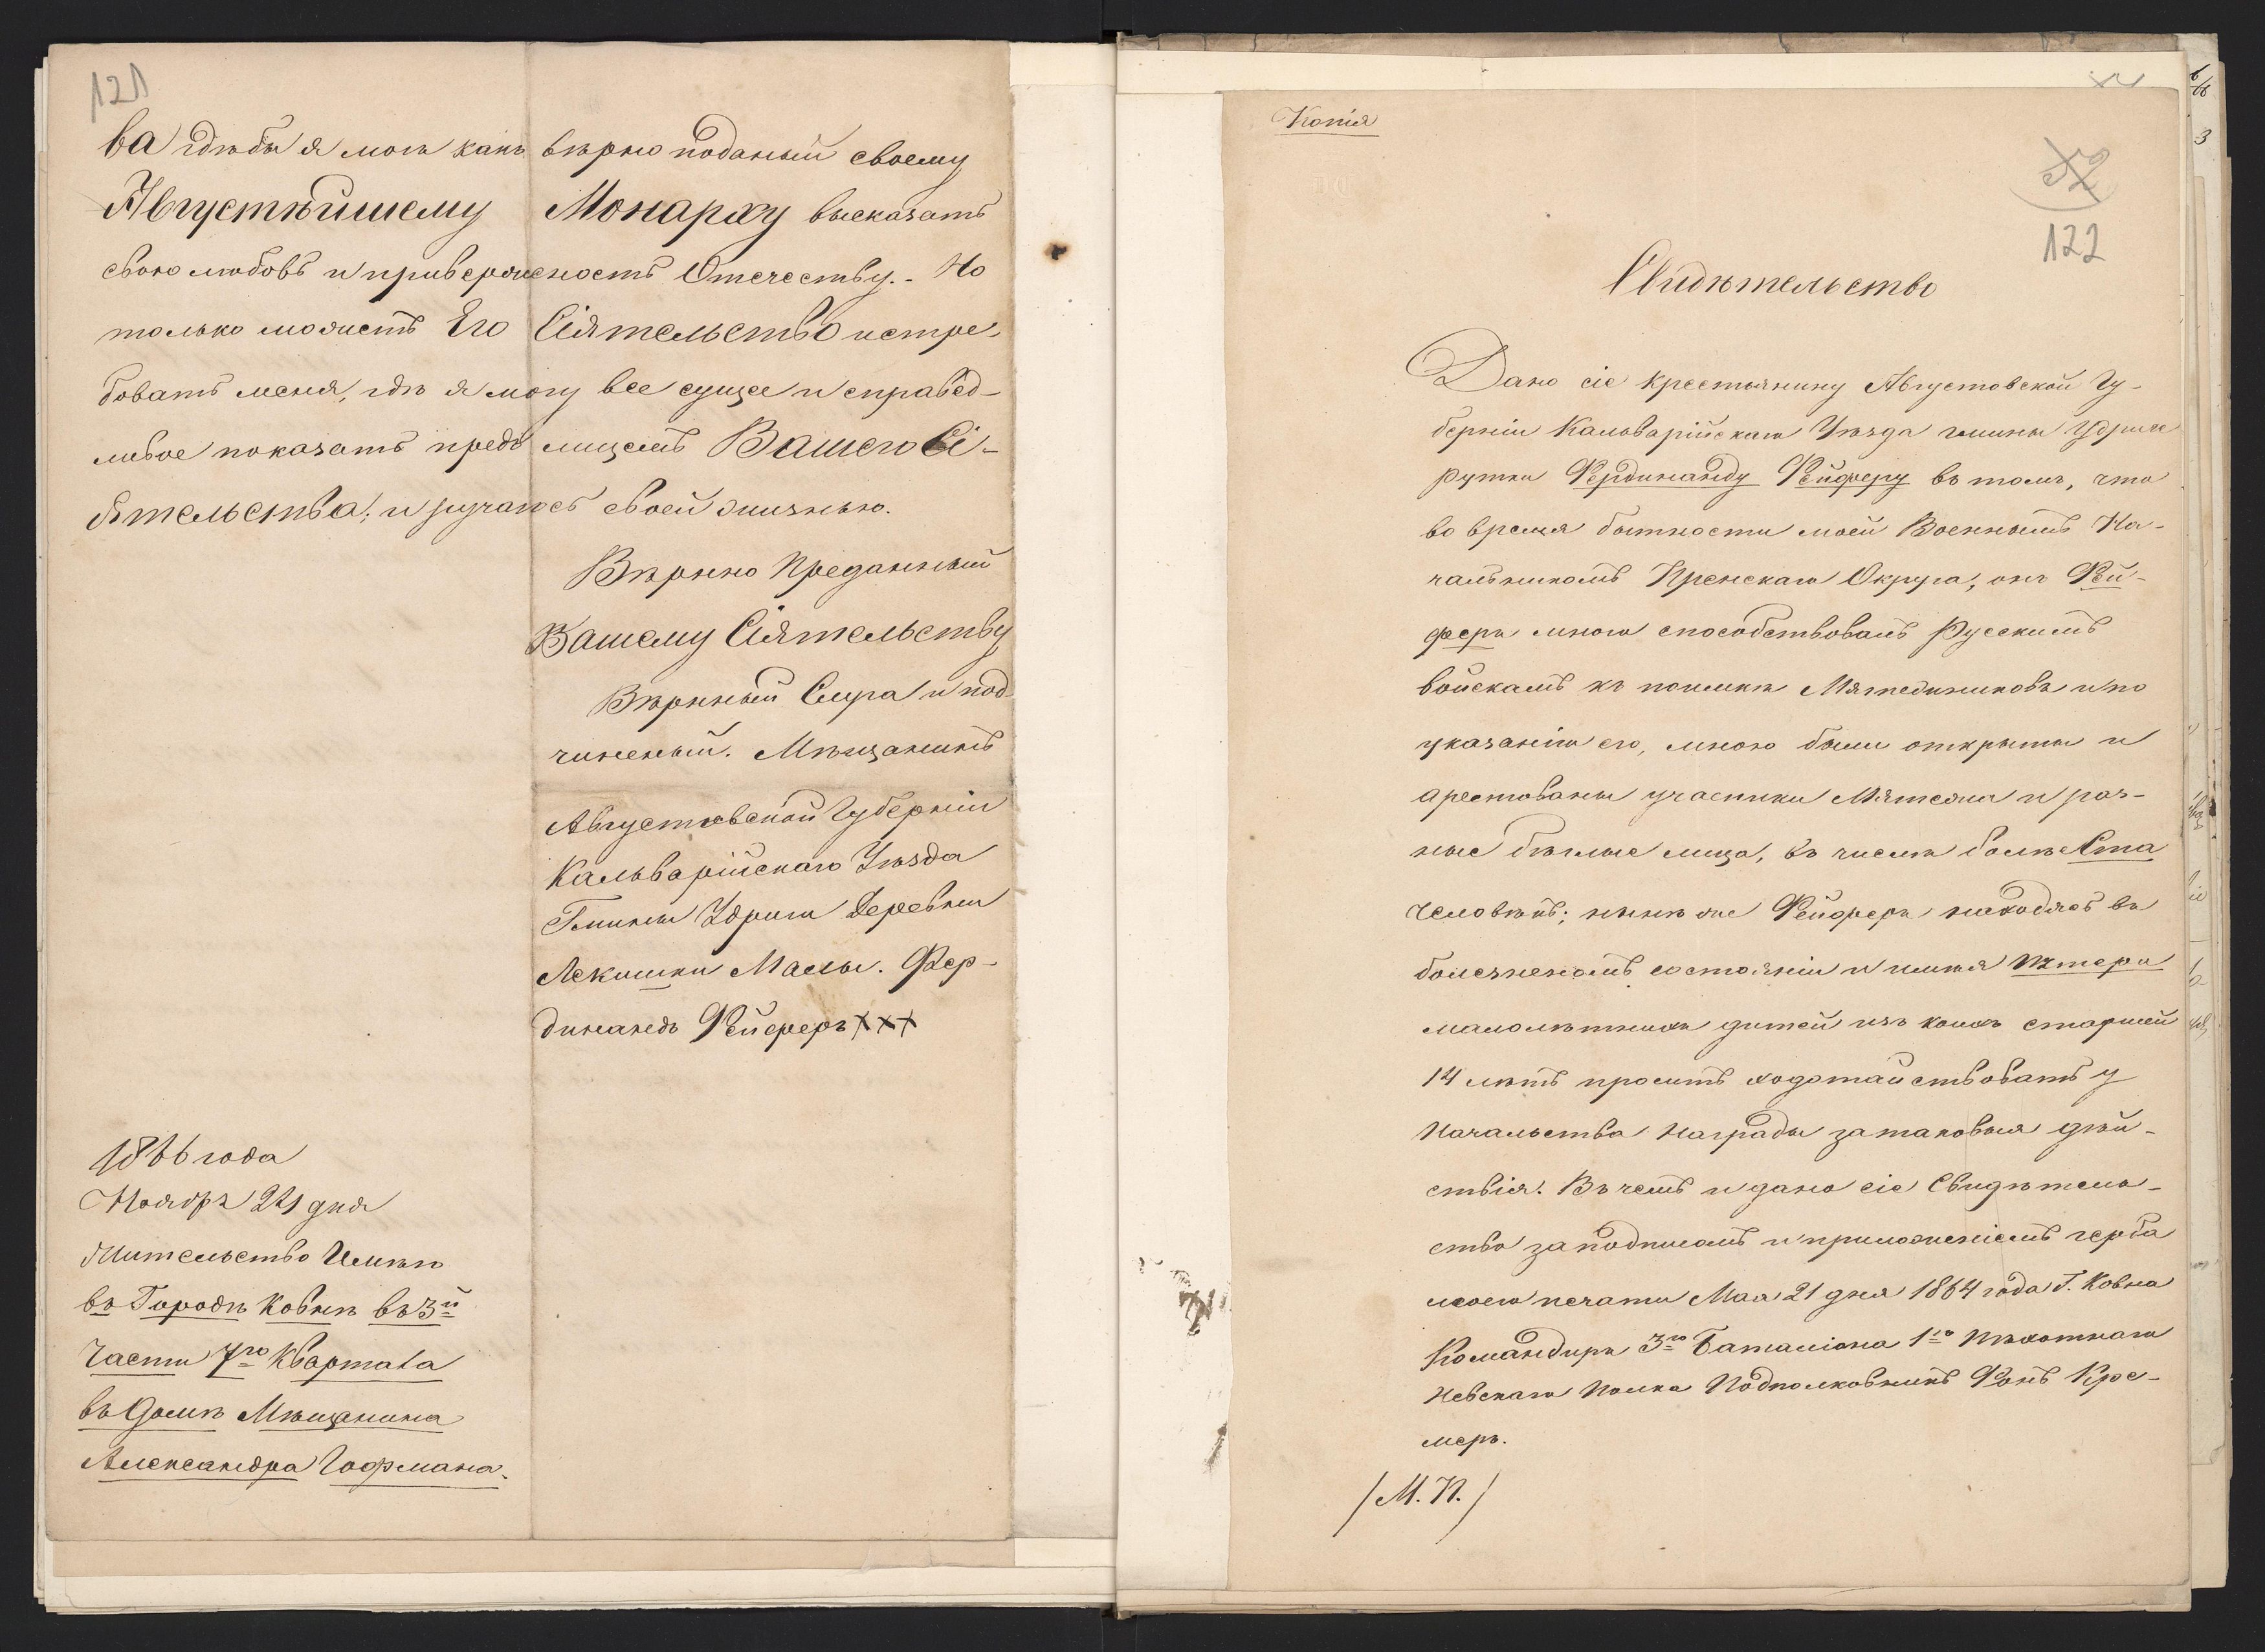 121
ва гдѣбы я могъ какъ вѣрно поданый своему
Августѣйшему Монарху высказать
свою любовь и приверженость Отечеству. - Но
только можетъ Его Сіятельство истре-
бовать меня, гдѣ я могу все сущее и справед-
ливое показать предъ лицемъ Вашего Сі-
ятельства; и ручаюсь своей жизнью.
Вѣрно Преданный
Вашему Сіятельству
Вѣрнный Слуга и под-
чиненый. Мѣщанинъ
Августовской Губерніи
Кальварійскаго Уѣзда
Гмины Удрыи Деревни
Лекишки Малы. Фер-
динандъ Фейферъ ххх
1866 года
Ноября 21 дня
Жительство Имѣю
въ Городѣ Ковнѣ въ 3й
Части 7го Квартала
въ Домѣ Мѣщанина
Александра Гофмана.
Копія
52
122
Свидѣтельство
Дано сіе крестьянину Августовской Гу-
берніи Кальварійскаго Уѣзда гмины Удрыи
Рутки Фердинанду Фейферу въ томъ, что
во время бытности моей Военнымъ На-
чальникомъ Пренскаго Округа, онъ Фей-
феръ много способствовалъ Русскимъ
войскамъ къ поимкѣ Мятежниковъ и по
указанію его, мною были открыты и
арестованы участники Мятежа и раз-
ные бѣглые лица, въ числѣ болѣе Ста
человѣкъ; нынѣ же Фейферъ находясь въ
болезненомъ состояніи и имѣя Пятеро
малолѣтнихъ дитей изъ коихъ старшей
14 лѣтъ проситъ ходотайствовать у
Начальства Награды за таковыя дѣй-
ствія. Въ чемъ и дано сіе Свидѣтель-
ство за подписомъ и приложеніемъ герба
моего печати Мая 21 дня 1864 года Г. Ковна
Командиръ 3го Баталіона 1го Пѣхотнаго
Невскаго Полка Подполковникъ Фонъ Кре-
меръ.
/М. П./